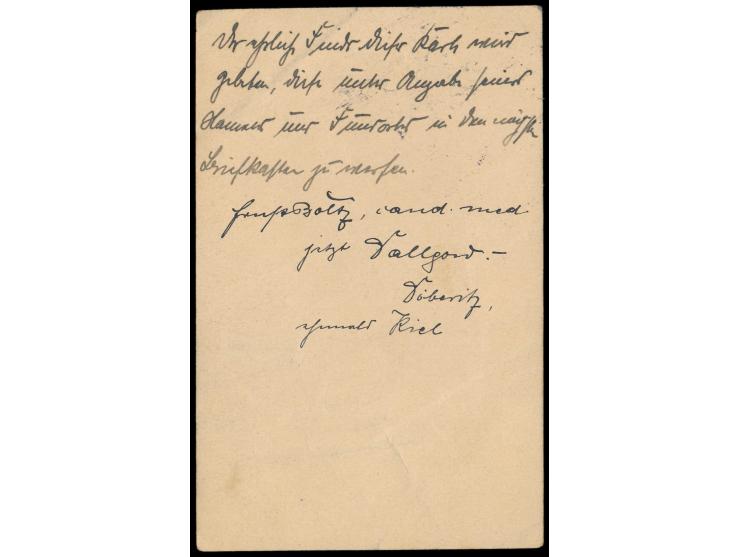 Der ehrliche Finder dieser Karte wird
gebeten, diese unter Angabe seines
Namens und Fundortes in den nächsten
Briefkasten zu werfen.
Ernst Boltz, cand. med.
jetzt Dallgow. –
Döberitz,
ehemals Kiel